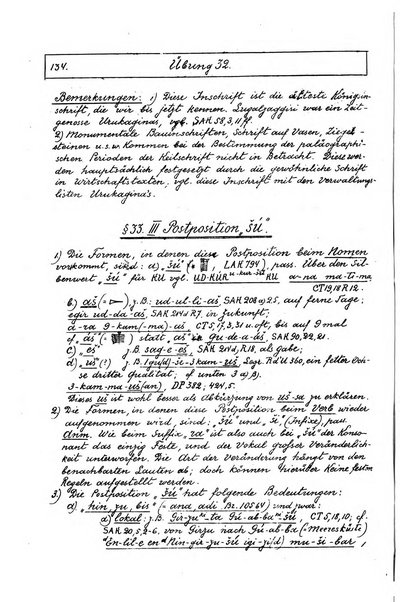 134. Übung 32.
Bemerkungen: 1) Diese Inschrift ist die älteste Königsin-
schrift, die wir bis jetzt kennen. Lugalzaggiri war ein Zeit-
genosse Urukaginas, vgl. SAK 58, 3, 11 ff.
2) Monumentale Bauinschriften, Schrift auf Vasen, Ziegel-
steinen u.s.w. kommen bei der Bestimmung der paläographi-
schen Perioden der Keilschrift nicht in Betracht. Diese wer-
den hauptsächlich festgesetzt durch die gewöhnliche Schrift
in Wirtschaftstexten, vgl. diese Inschrift mit den Verwaltungs-
listen Urukaginas.
§ 33. III Postposition „šú".
1) Die Formen, in denen diese Postposition beim Nomen
vorkommt, sind: a) „šú" LAK 794), pass. Über den Sil-
benwert „šú" für KU vgl. UD-KÚR a-na ma-ti-ma
CT 19, 18 R 12.
b) aš z.B: ud-ul-li-aš, SAK 208 a) 25, auf ferne Tage;
egir ud-da-aš, SAK 214 d R 7, in Zukunft;
a-ra 9-kam(-ma)-aš, CT 5, 17, 3, 31 u. oft, bis auf 9 mal
cf „áš" statt „aš" in Gu-de-a-áš, SAK 20, 22, 21.
c) „eš", z.B. sag-e-eš, SAK 214 d, R 18, als gabe;
d) „uš"(?) z.B. gu(d)-še-3-kam-uš, Legr. Rd U 360, ein fetter Och-
se dritter Qualität; cf unten 3 a) β).
3-kam-ma-uš(an), DP 382; 424, 5.
Dieses uš ist wohl besser als Abkürzung von uš-sa zu erklären.
2) Die Formen, in denen diese Postposition beim Verb wieder
aufgenommen wird, sind: „šú" und „ši" (Infixe), pass.
Anm. Wie beim Suffix „ra" ist also auch bei „šú" der Konso-
nant das einzig Feste, und der Vokal großer Veränderlich-
keit unterworfen. Die Art der Veränderung hängt von den
benachbarten Lauten ab; doch können hierüber keine festen
Regeln aufgestellt werden.
3) Die Postposition „šú" hat folgende Bedeutungen:
a) „hin, zu, bis" (= ana adi Br. 10564) und zwar:
α) lokal: z.B. Gír-zu-ta Gú-ab-ba-šú, CT 5, 18, 10; cf.
SAK 20, 5, 2-6. von Girzu nach Gú-ab-ba (= Meeresküste)
En-líl-e en Nin-gír-zu-šú igi-zi(d) mu-ši-bar,